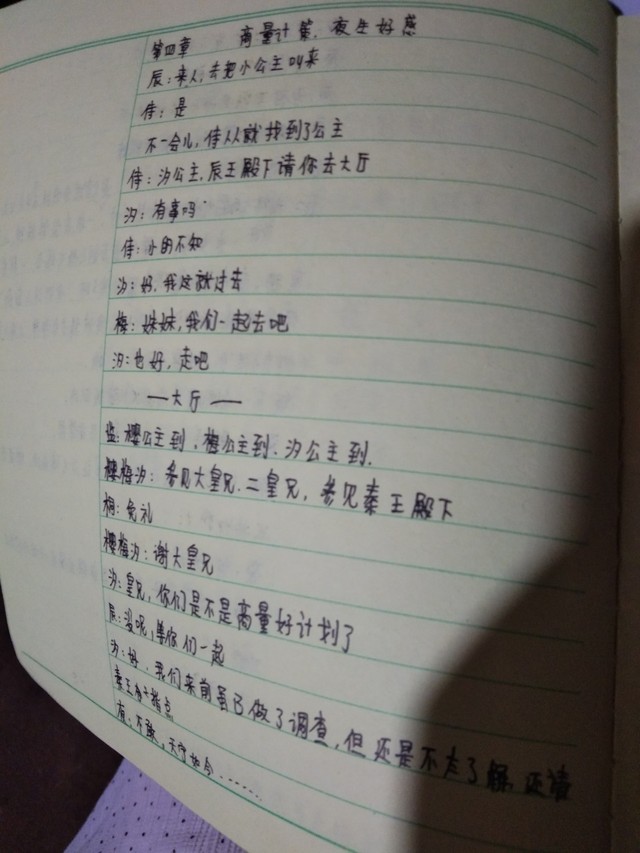 第四章 商量计策，夜生好感
辰：来人，去把小公主叫来
侍：是
不一会儿，侍从就找到了公主
侍：汐公主，辰王殿下请你去大厅
汐：有事吗
侍：小的不知
汐：好，我这就过去
梅：妹妹，我们一起去吧
汐：也好，走吧
—大厅—
监：樱公主到，梅公主到，汐公主到.
樱梅汐：参见大皇兄.二皇兄，参见秦王殿下
桐：免礼
樱梅汐：谢大皇兄
汐：皇兄，你们是不是商量好计划了
辰：没呢，等你们一起
汐：好，我们来前虽已做了调查，但还是不太了解，还请
秦王殿下指点
不敢，天宁如今……